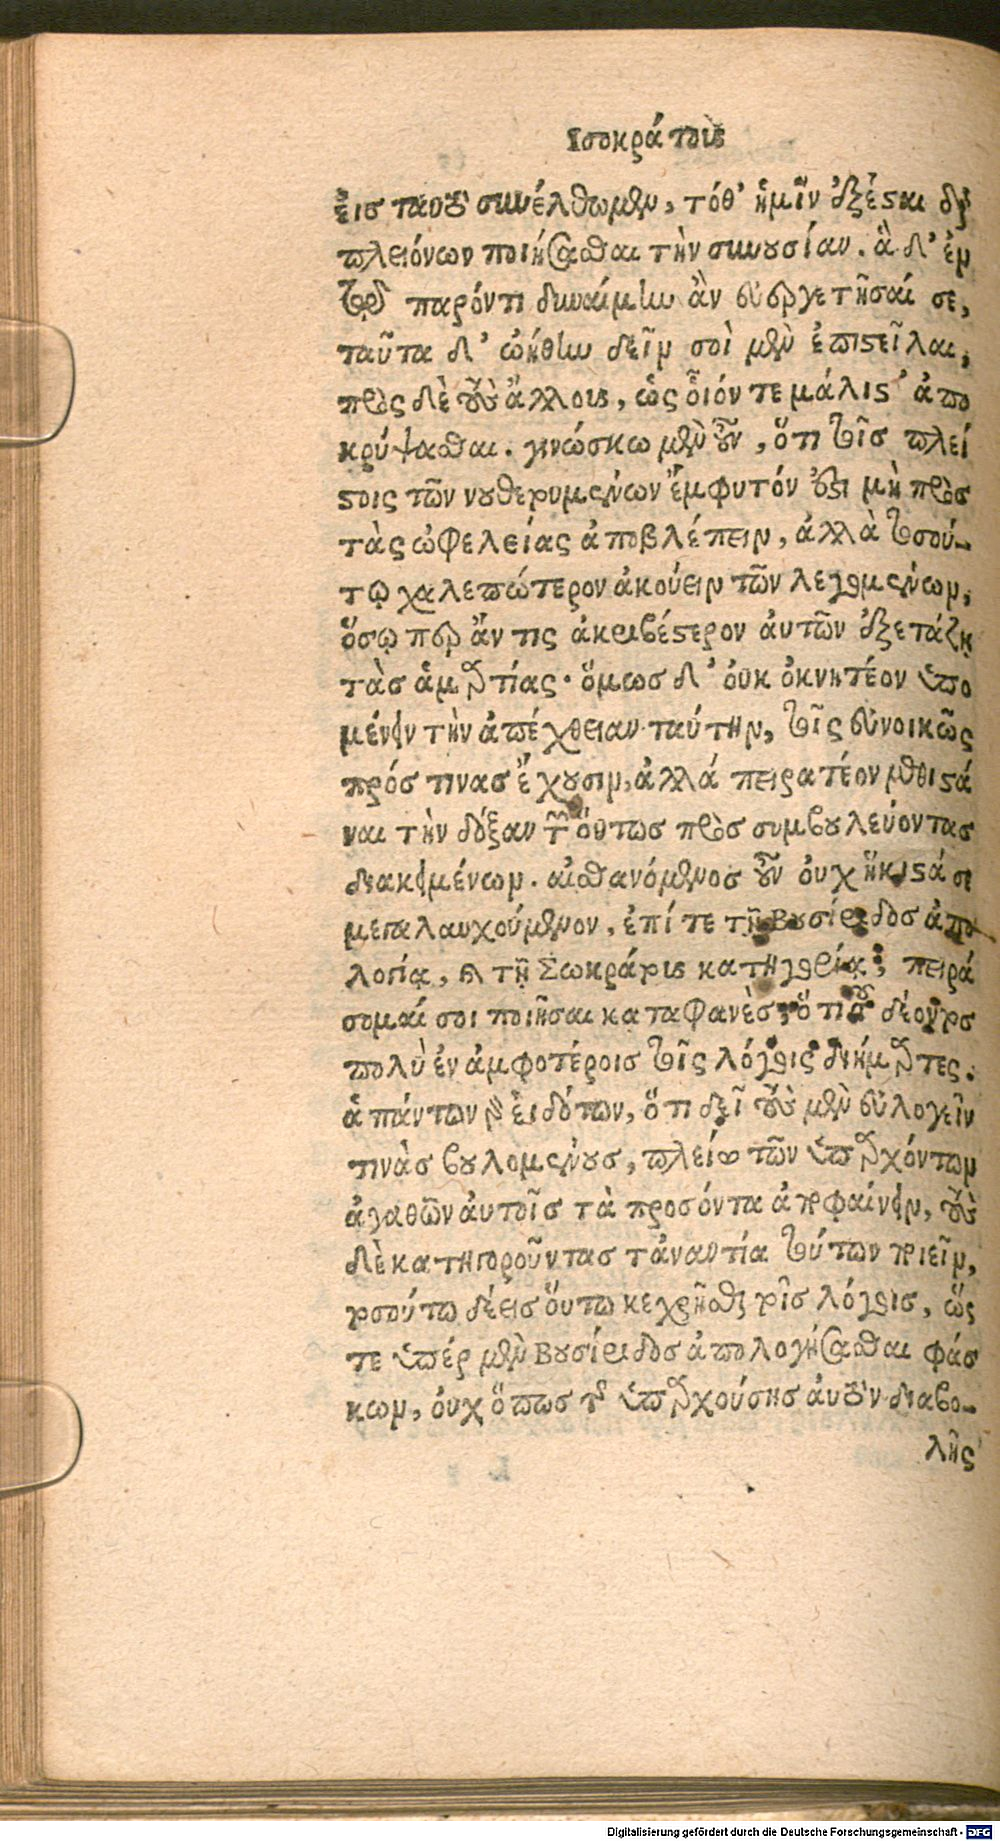 Ισοκράτους
εἰς ταυτὸ συνέλθωμεν, τόθ' ἡμῖν ἐξέσται διὰ
πλειόνων ποιήσασθαι τὴν συνουσίαν. ἃ δ' ἐν
τῷ παρόντι δυναίμην ἂν εὐεργετῆσαί σε,
ταῦτα δ' ᾠήθην δεῖν σοὶ μὲν ἐπιστεῖλαι,
πρὸς δὲ τοὺς ἄλλους, ὡς οἷόν τε μάλιστ' ἀπο
κρύψασθαι. γινώσκω μὲν οὖν, ὅτι τοῖς πλεί
στοις τῶν νουθετουμένων ἔμφυτόν ἐστι μὴ πρὸς
τὰς ὠφελείας ἀποβλέπειν, ἀλλὰ τοσού-
τῳ χαλεπώτερον ἀκούειν τῶν λεγομένων,
ὅσῳ περ ἄν τις ἀκριβέστερον αὐτῶν ἐξετάζῃ
τὰς ἁμαρτίας. ὅμως δ' οὐκ ὀκνητέον ὑπο
μένειν τὴν ἀπέχθειαν ταύτην, τοῖς εὐνοικῶς
πρός τινας ἔχουσιν, ἀλλά πειρατέον μεθιστά
ναι τὴν δόξαν τῶν οὕτως πρὸς συμβουλεύοντας
διακειμένων. αἰσθανόμενος οὖν οὐχ ἥκιστά σε
μεγαλαυχούμενον, ἐπί τε τῇ Βουσίριδος ἀπο
λογίᾳ, καὶ τῇ Σωκράτους κατηγορίᾳ, πειρά
σομαί σοι ποιῆσαι καταφανὲς, ὅτι τοῦ δέοντος
πολὺ ἐν ἀμφοτέροις τοῖς λόγοις διήμαρτες.
ἁπάντων γὰρ εἰδότων, ὅτι δεῖ τοὺς μὲν εὐλογεῖν
τινὰς βουλομένους, πλείω τῶν ὑπαρχόντων
ἀγαθῶν αὐτοῖς τὰ προσόντα ἀποφαίνειν, τοὺς
δὲ κατηγοροῦντας τἀναντία τούτων ποιεῖν,
τοσούτῳ δέεις οὕτω κεχρῆσθαι τοῖς λόγοις, ὥς
τε ὑπέρ μὲν Βουσίριδος ἀπολογήσασθαι φάσ
κων, οὐχ ὅπως τῆς ὑπαρχούσης αὐτὸν διαβο-
λῆς
Digitalisierung gefördert durch die Deutsche Forschungsgemeinschaft - DFG